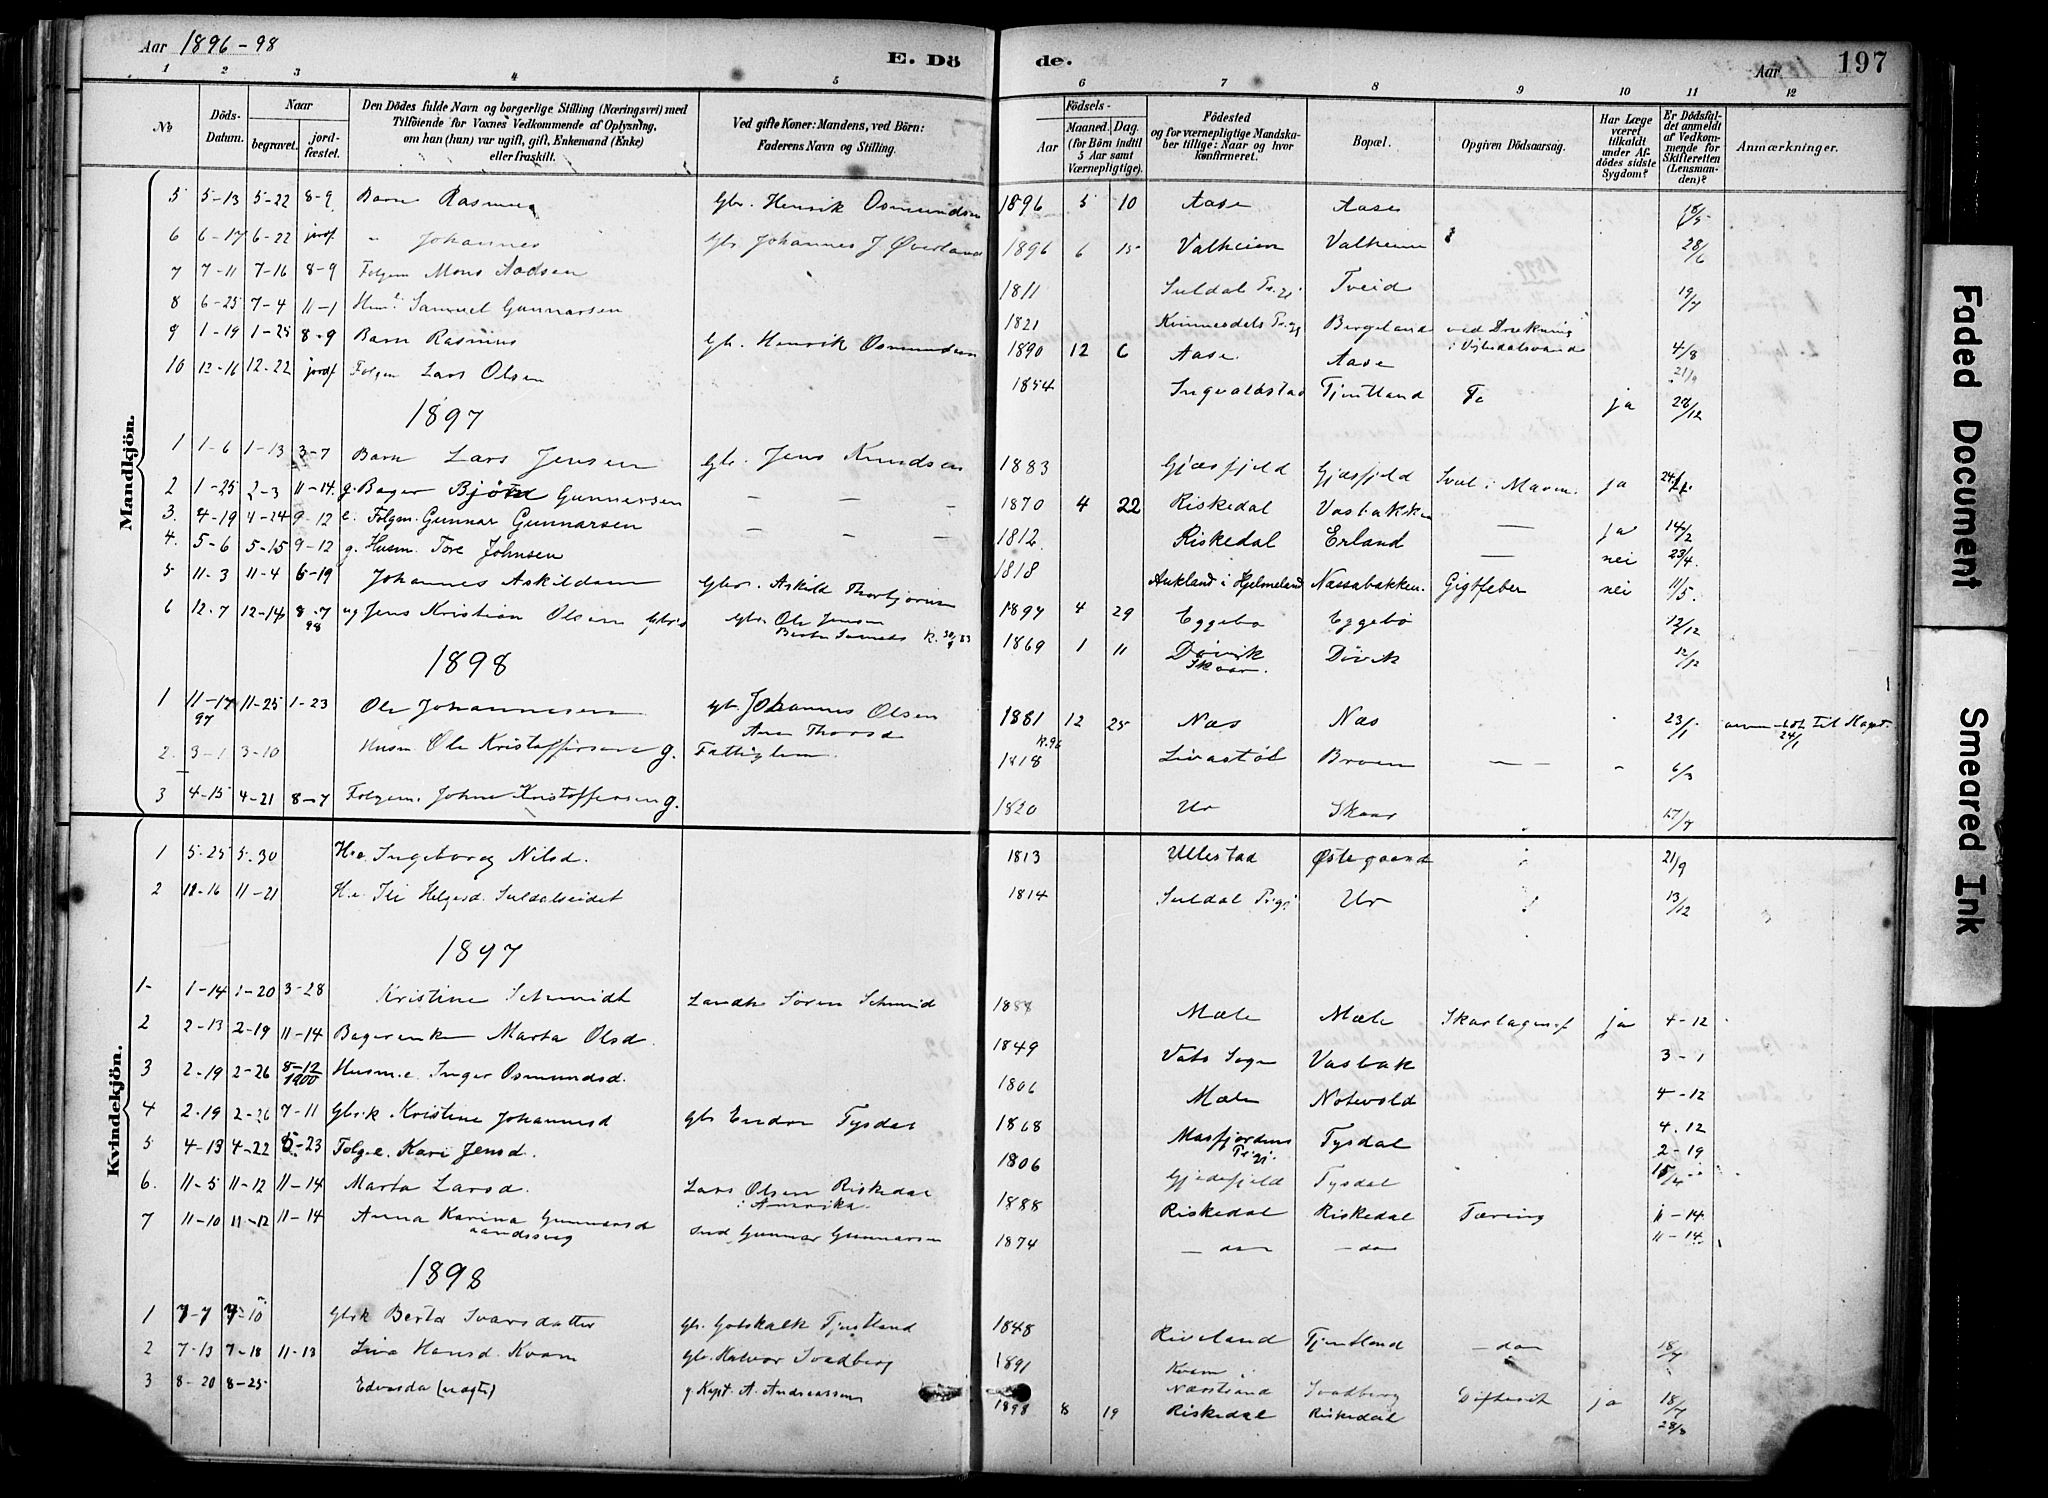 Aar 1896-98
E. Döde.
Aar
197
1 2 3 4 5 6 7 8 9 10 11 12
No
Döds-Datum.
Naar
begravet.
jordfæstet.
Den Dödes fulde Navn og borgerlige Stilling (Næringsvei) med Tilföiende for Voxnes Vedkommende af Oplysning, om han (hun) var ugift, gift, Enkemand (Enke) eller fraskilt.
Ved gifte Koner: Mandens, ved Börn: Faderens Navn og Stilling.
Födsels-
Aar
Maaned.
Dag.
(for Börn indtil 5 Aar samt Værnepligtige).
Födested og for værnepligtige Mandskaber tillige: Naar og hvor konfirmeret.
Bopæl.
Opgiven Dödsaarsag.
Har Læge været tilkaldt under Afdödes sidste Sygdom?
Er Dödsfaldet anmeldt af Vedkommende for Skifteretten (Lensmanden)?
Anmærkninger.
Mandkjön.
5 5-13 5-22 8-9 Barn Rasmus Gbr. Henrik Osmundsen 1896 5 10 Aase Aase 18/5
6 6-17 6-22 jordf " Johannes Gbr Johannes J Øverland 1896 6 15 Valheim Valheim 28/6
7 7-11 7-16 8-9 Folgem Mons Aadsen 1811 Suldal Prgj Tveid 19/7
8 6-25 7-4 11-1 Samuel Gunnarsen 1821 Kvinnesdals Prgj Bergeland ved Drukning i 4/8
9 1-19 1-25 8-9 Barn Rasmus Gbr. Henrik Osmundsen 1890 12 6 Aase Aase 21/9
10 12-16 12-22 jordf Folgem Lars Olsen 1854 Ingvaldstad Tjentland ja 28/12
1897
1 1-6 1-13 3-7 Barn Lars Jensen Gbr. Jens Knudsen 1883 Gjæsfjeld Gjæsfjeld i Maven ja
2 1-25 2-3 11-14 g. Bager Bjørn Gunnarsen — — - 1870 4 22 Riskedal Vasbakken — ja 14/2
3. 4-19 4-24 9-12 e. Folgm. Gunnar Gunnarsen — — - 1812 Riskedal Erland — nei 23/4
4. 5-6 5-15 9-12 g. Husm. Tore Johnsen 1818 Aukland i Hjelmeland Næssabakken Gigtfeber nei 11/5
5 11-3 11-4 6-19 Johannes Askildsen Gbr. Askild Thorbjørnsen 1897 4 29 Eggebø Eggebø 12/12
6 12-7 12-14 8-7 98 ug Jens Kristian Olsen Gbr. Ole Jensen 1869 1 11 Døvik Skaar Døvik 12/12
1898
1 11-17 97 11-25 1-23 Ole Johannesen gbr Johannes Olsen 1881 12 25 Næs Næs 23/1
2. 3-1 3-10 Husm Ole Kristoffersen g. Fattiglem. 1818 Livastøl Broen — — - 6/3
3 4-15 4-21 8-7 Folgem. John Kristoffersen g. 1820 Ur Skaar 17/7
Kvindekjön.
1 5-25 5-30 H.e Ingeborg Nilsd. 1813 Ullestad Østegaard 21/9
2 11-16 11-21 H.e Ili Helgesd. Suldalseidet 1814 Suldal Prgj Ur 13/12
1897
1- 1-14 1-20 3-28 Kristine Schmidt Landh. Søren Schmid 1888 Mæle Mæle Skarlagensf ja 4-12
2 2-13 2-19 11-14 Bagerenke Marta Olsd. 1849 Vats Sogn Vasbak 3-1
3 2-19 2-26 8-12 1900 Husm.e. Inger Osmundsd. 1806 Mæle Notevold 4-12
4 2-19 2-26 7-11 Gbrk. Kristine Johannesd gbr Endre Tysdal 1868 Masfjordens Prgj. Tysdal 4.12
5 4-13 4-22 8-23 Folg.e. Kari Jensd. 1806 Gjedefjeld Tysdal 2-19
6. 11-5 11-12 11-14 Marta Larsd. Lars Olsen Riskedal i Amerika 1888 Riskedal Riskedal Tæring 11-14
7 11-10 11-12 11-14 Anna Karina Gunnarsd aandssvag Ind. Gunnar Gunnarsen 1874 — do — do 11-14
1898
1 7-7 7-10 Gbrk Berta Ivarsdatter gbr. Gotskalk Tjentland 1848 Riveland Tjentland — do 18/7
2 7-13 7-18 11-13 Liva Hansd. Kvam gbr. Halvor Svadberg 1891 Kvam i Nærstrand Svadberg Difterit ja 18/7
3 8-20 8-25 Edvarda (uægte) g. Kapt. A. Andreassen 1898 8 19 Riskedal Riskedal 28/8
Faded Document
Smeared Ink